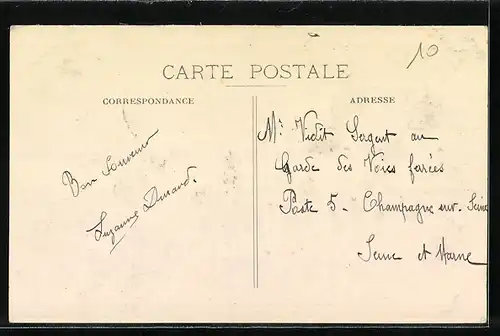 10
CARTE POSTALE
CORRESPONDANCE
ADRESSE
Bon Souvenir
Suzanne Durand.
Mr Vidit Sergent au
Garde des Voies ferrées
Poste 5 - Champagne sur Seine
Seine et Marne